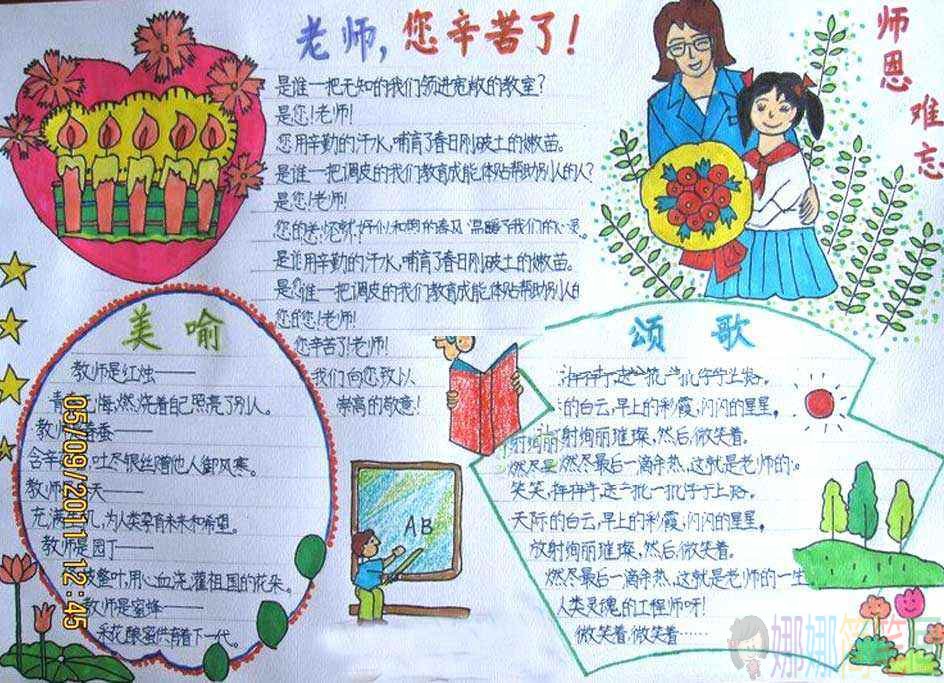 老师,您辛苦了!
师恩难忘
是谁一把无知的我们领进宽敞的教室?
是您!老师!
您用辛勤的汗水,哺育了春日刚破土的嫩苗。
是谁一把调皮的我们教育成能体贴帮助别人的人?
是您!老师!
您的
春风 温暖了我们的心灵。
是 用辛勤的汗水,哺育了春日刚破土的嫩苗。
是 谁一把调皮的我们教育成能体贴帮助别人的
您的您!老师!
您辛苦了!老师!
我们向您致以
崇高的敬意!
美喻
教师是红烛——
青 悔,燃烧着自己照亮了别人。
教师 春蚕——
含辛 吐尽银丝赠他人御风寒。
教师 天——
充满 机,为人类孕育未来和希望。
教师是园丁——
枝整叶,用心血浇灌祖国的花朵。
教师是蜜蜂——
采花酿蜜供育着下一代。
AB
颂歌
的白云,早上的彩霞,闪闪的星星。
射绚丽璀璨,然后,微笑着。
燃尽最后一滴年热,这就是老师的
笑笑,挥挥手,送一批一批孩子上路。
天际的白云,早上的彩霞,闪闪的星星。
放射绚丽璀璨,然后,微笑着。
燃尽最后一滴年热,这就是老师的一生
人类灵魂的工程师呀!
微笑着,微笑着……
05/09/2011 12:45
娜娜简笔